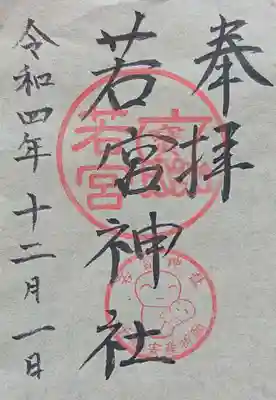 奉拝
若宮神社
令和四年十二月一日
若宮